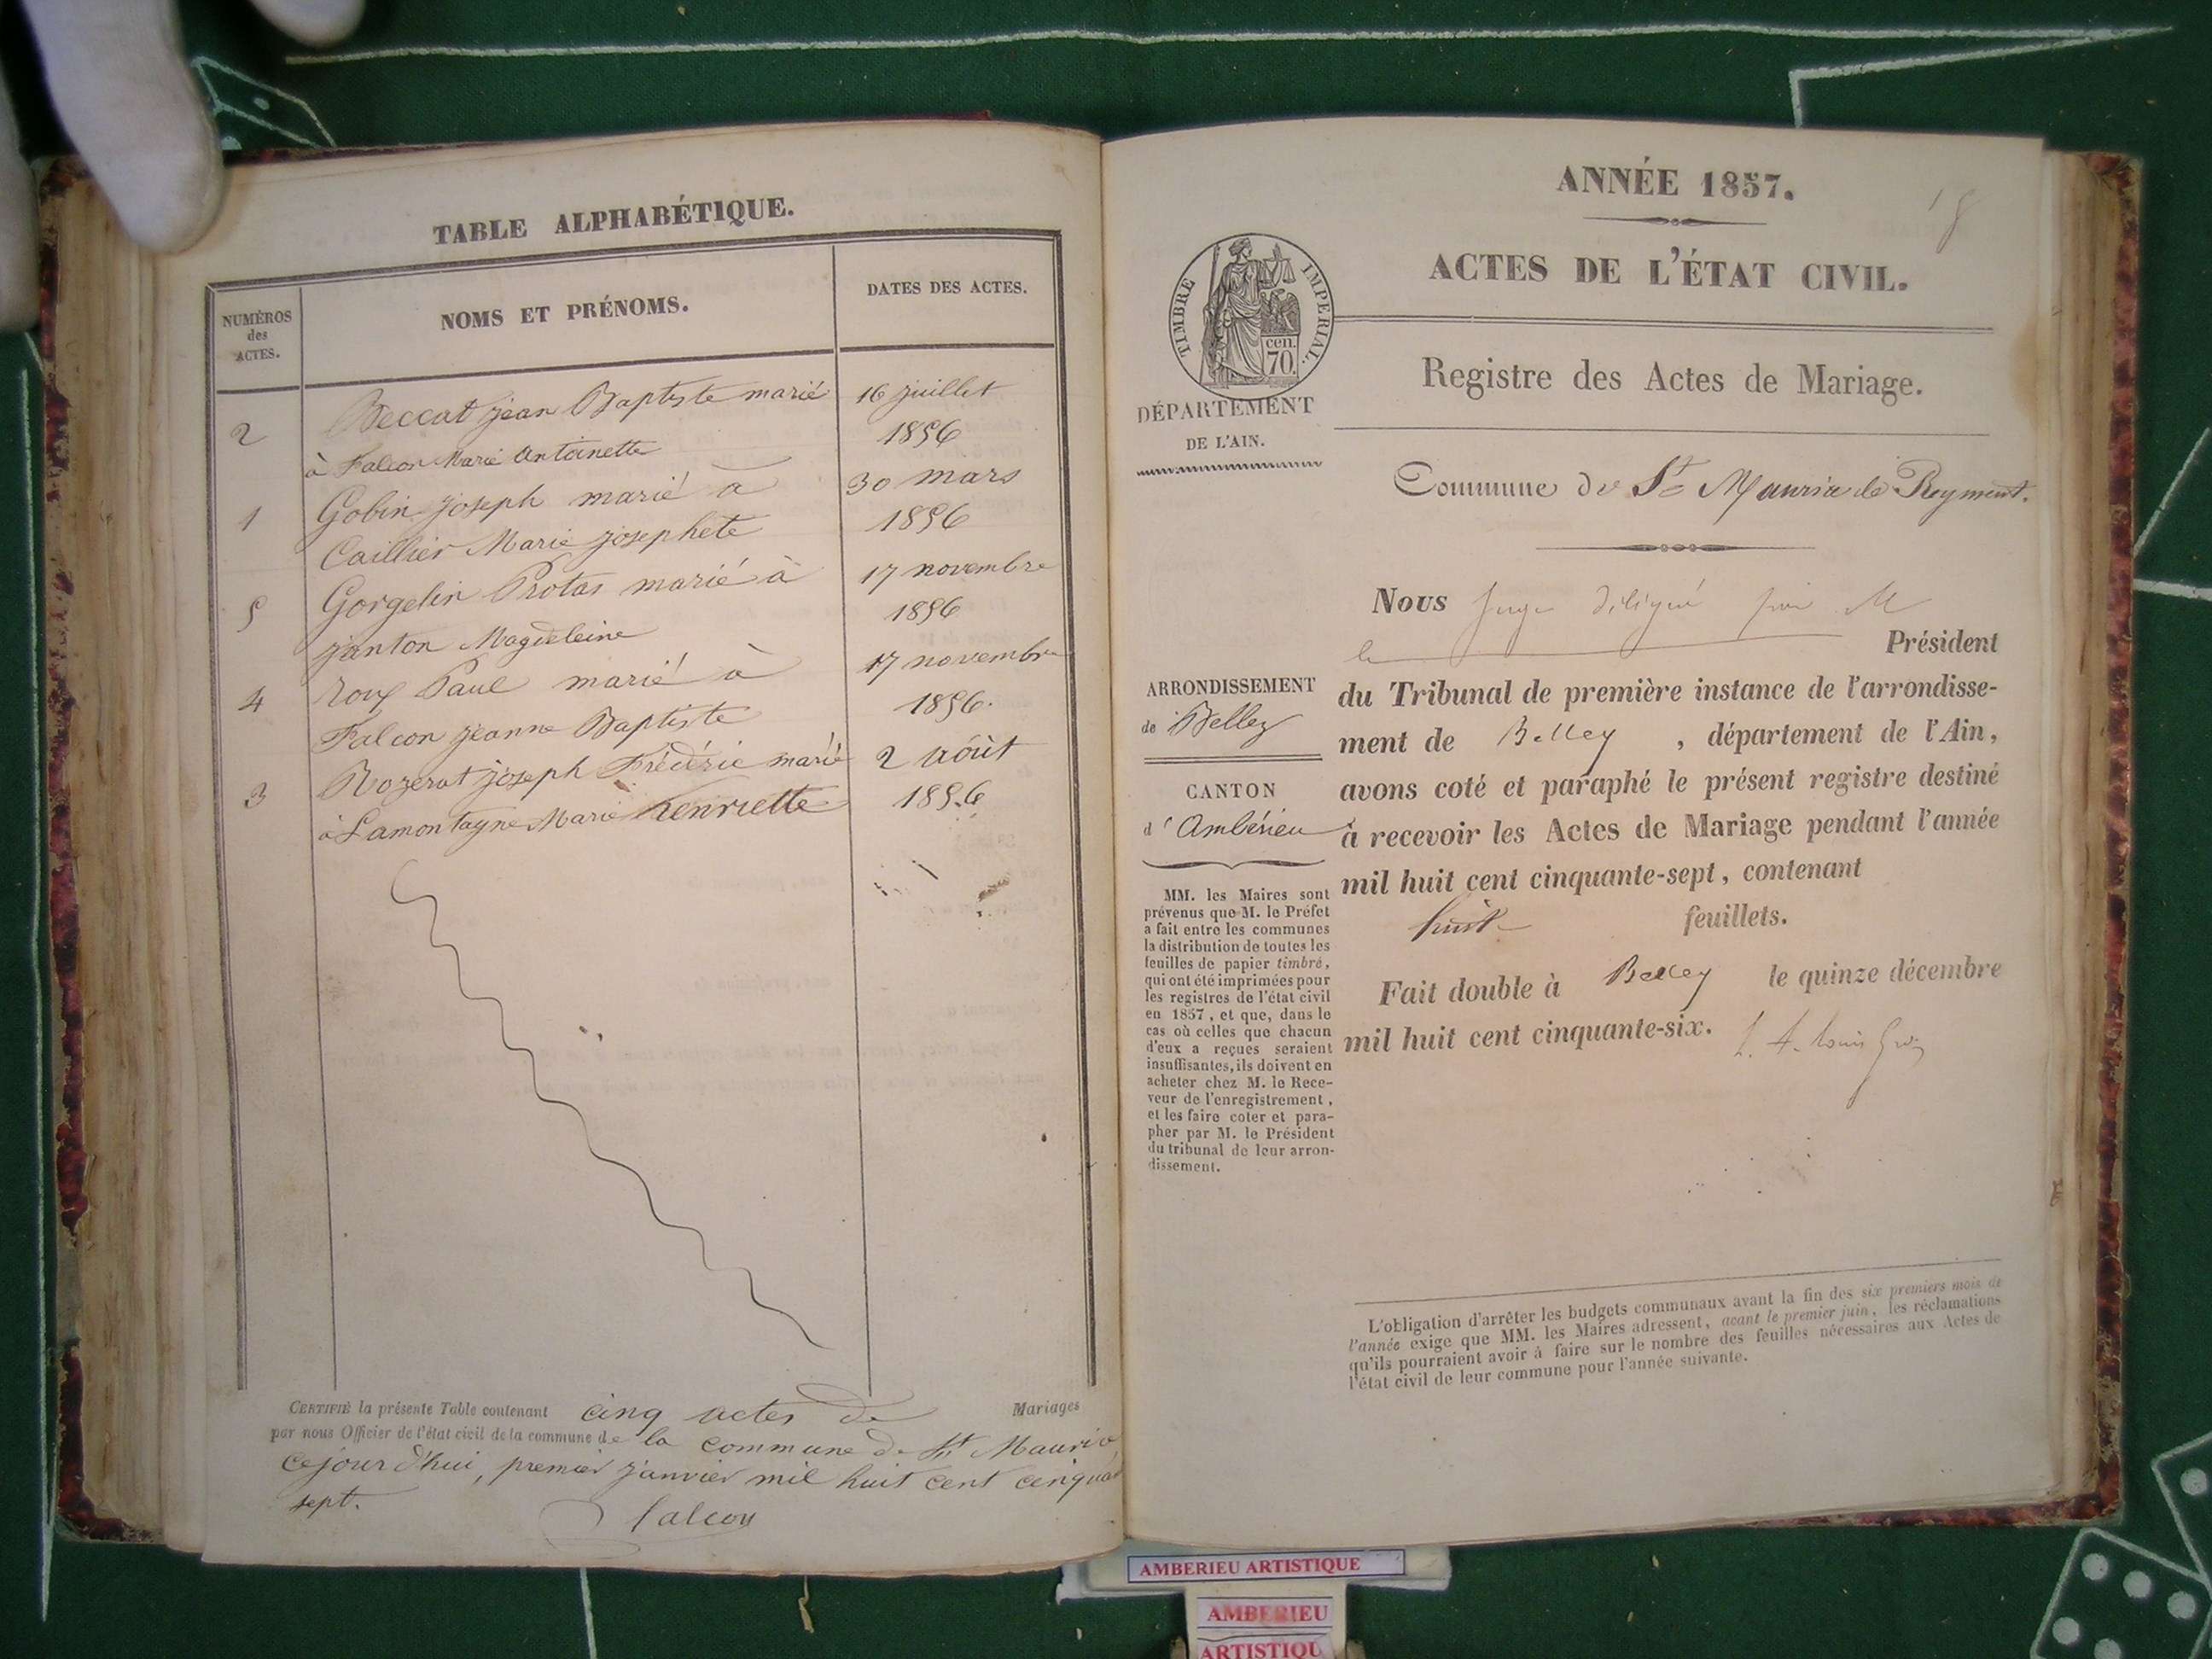 TABLE ALPHABÉTIQUE.
NUMÉROS
des
ACTES.
NOMS ET PRÉNOMS.
DATES DES ACTES.
2
Beccat jean Baptiste marié
16 juillet
à Falcon Marie Antoinette
1856
1
Gobin joseph marié à
30 mars
Caillier Marie josephete
1856
5
Gorgelin Protas marié à
17 novembre
janton Magdeleine
1856
4
roux Paul marié à
17 novembre
Falcon jeanne Baptiste
1856.
3
Rozerat joseph Frédéric marié
2 août
à Lamontagne Marie henriette
1856
CERTIFIÉ la présente Table contenant cinq actes de Mariages
par nous Officier de l'état civil de la commune de la commune de St Maurice
cejourd'hui, premier janvier mil huit cent cinquan
sept.
falcon
ANNÉE 1857.
18
ACTES DE L'ÉTAT CIVIL.
TIMBRE IMPERIAL.
cen.
70.
Registre des Actes de Mariage.
DÉPARTEMENT
DE L'AIN.
Commune de St Maurice de Reyment.
Nous Juge délégué par M
le Président
du Tribunal de première instance de l'arrondisse-
ment de Belley , département de l'Ain,
avons coté et paraphé le présent registre destiné
à recevoir les Actes de Mariage pendant l'année
mil huit cent cinquante-sept, contenant
huit feuillets.
Fait double à Belley le quinze décembre
mil huit cent cinquante-six.
ARRONDISSEMENT
de Belley
CANTON
d'Ambérieu
MM. les Maires sont
prévenus que M. le Préfet
a fait entre les communes
la distribution de toutes les
feuilles de papier timbré,
qui ont été imprimées pour
les registres de l'état civil
en 1857, et que, dans le
cas où celles que chacun
d'eux a reçues seraient
insuffisantes, ils doivent en
acheter chez M. le Rece-
veur de l'enregistrement,
et les faire coter et para-
pher par M. le Président
du tribunal de leur arron-
dissement.
L'obligation d'arrêter les budgets communaux avant la fin des six premiers mois de
l'année exige que MM. les Maires adressent, avant le premier juin, les réclamations
qu'ils pourraient avoir à faire sur le nombre des feuilles nécessaires aux Actes de
l'état civil de leur commune pour l'année suivante.
AMBERIEU ARTISTIQUE
AMBERIEU
ARTISTIQU